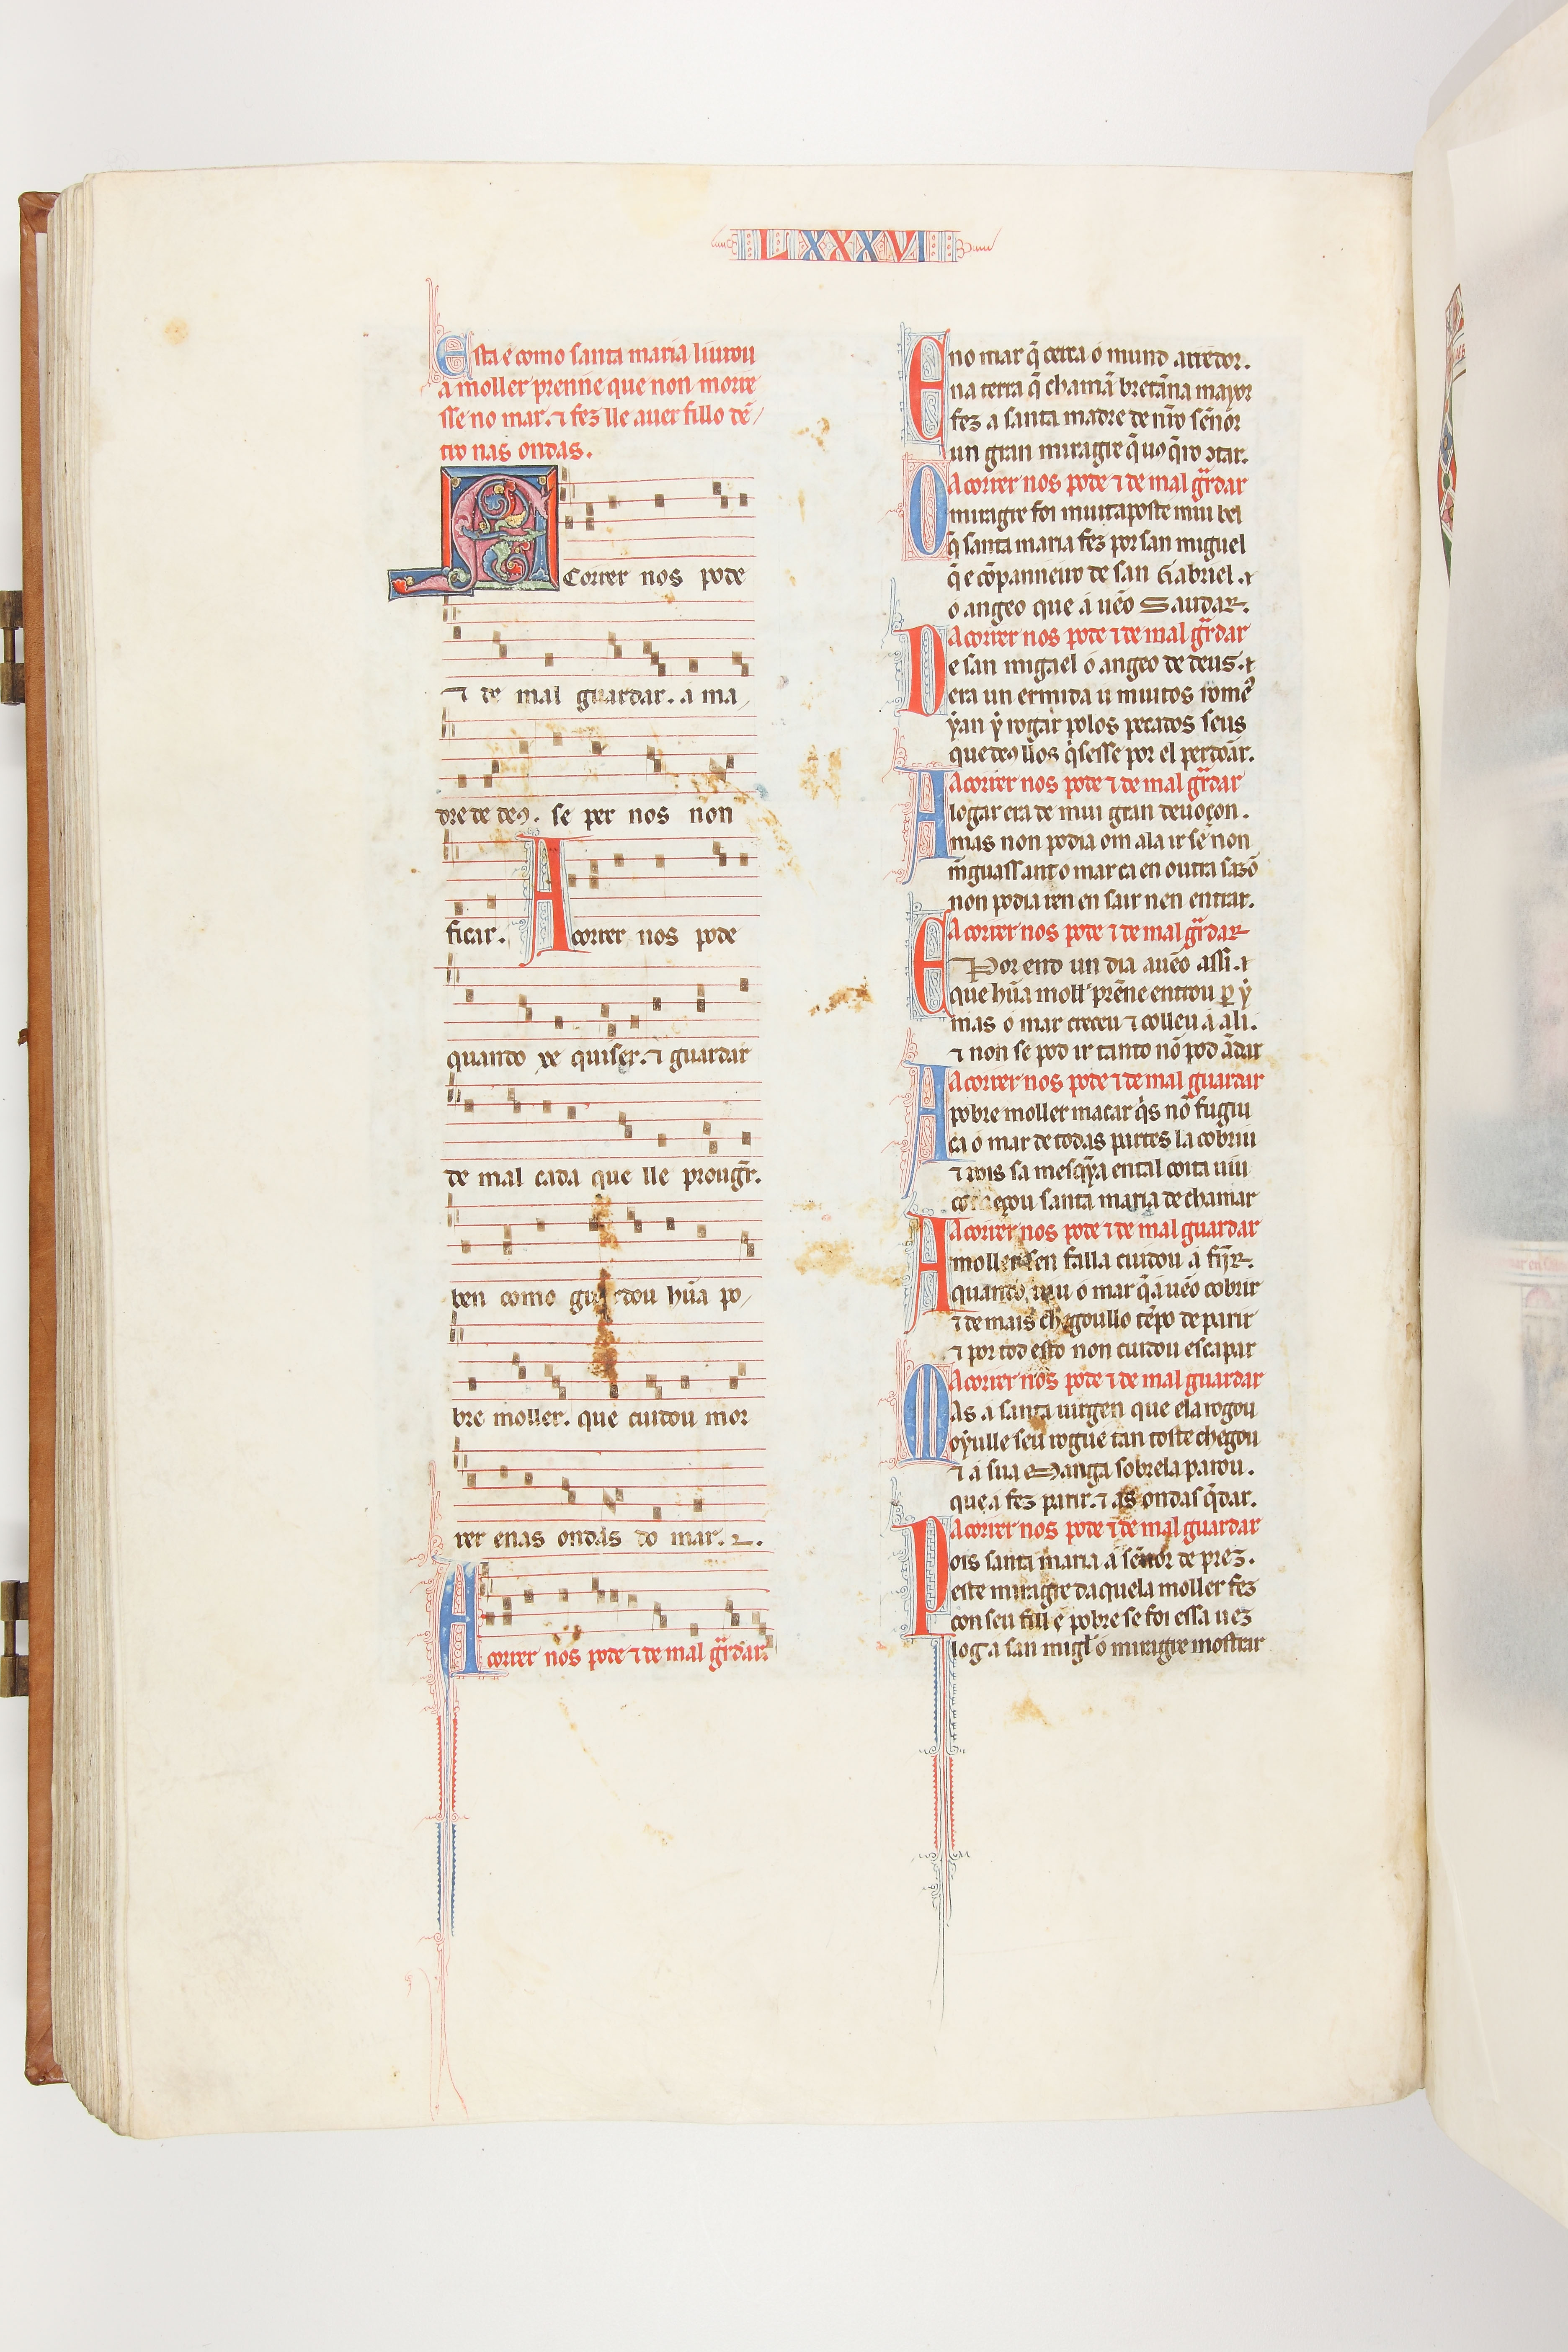 LXXXVI
Esta e como santa maria liurou
a moller prenne que non morre
sse no mar. ⁊ fez lle auer fillo dẽ/
tro nas ondas.
ACorrer nos pode
⁊ de mal guardar. a ma/
dre de deꝯ. se per nos non
ficar. Acorrer nos pode
quando xe quiser. ⁊ guardar
de mal cada que lle prouguer̃.
ben como guardou hũa po/
bre moller. que cuidou mor
rer enas ondas do mar.
Acorrer nos pode ⁊ de mal gr̃dar.
Eno mar q̃ cerca o mund arredor.
ena terra q̃ chamã bretãna mayor
fez a santa madre de nr̃o señor
un gran miragre q̃ uoꝯ q̃ro ↄtar.
Acorrer nos pode ⁊ de mal gr̃dar
O miragre foi muit aposte mui bel
q̃ santa maria fez por san miguel
q̃ e cõpanneiro de san Gabriel.
o angeo que á uẽo Saudar.
Acorrer nos pode ⁊ de mal gr̃dar
De san migael o angeo de deus.
era un ermida u muitos rome
ẏan ẏ rogar polos pecados seus
que deꝯ llos q̃sesse por el perdõar.
Acorrer nos pode ⁊ de mal gr̃dar
A logar era de mui gran deuoçon.
mas non podia om ala ir se non
mĩguass ant o mar ca en outra sazõ
non podia ren en sair nen entrar.
Acorrer nos pode ⁊ de mal gr̃dar
E Por end un dia auẽo assi.
que hũa moll' prẽne entrou ꝑ ẏ
mas o mar creceu ⁊ colleu á ali.
⁊ non se pod ir tanto nõ pod ãdar
Acorrer nos pode ⁊ de mal guardar
A pobre moller macar q̃s nõ fugiu
ca o mar de todas partes la cobriu
⁊ pois sa mesq̃ẏa en tal coita uiu
começou santa maria de chamar
Acorrer nos pode ⁊ de mal guardar
A moller sen falla cuidou a fĩjr.
quando uiu o mar q̃ á uẽo cobrir
⁊ de mais chegoullo tẽpo de parir
⁊ por tod esto non cuidou escapar
Acorrer nos pode ⁊ de mal guardar
Mas a santa uirgen que ela rogou
oẏulle seu rogue tan toste chegou
⁊ a sua Manga sobrela parou.
que a fez parir. ⁊ as ondas q̃dar.
Acorrer nos pode ⁊ de mal guardar
Pois santa maria a señor de prez.
este miragre daquela moller fez
con seu fill e pobre se foi essa uez
log a san migl̃ o miragre mostrar